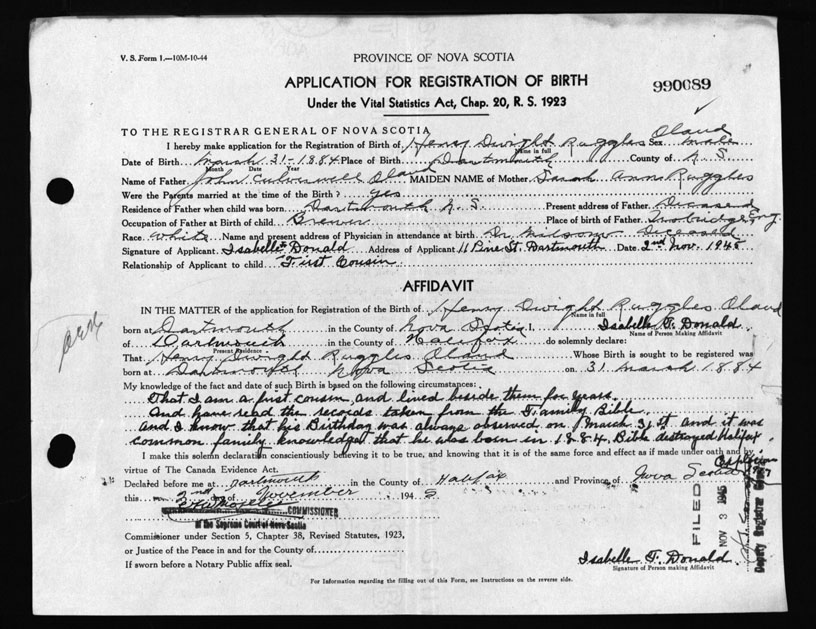 V. S. Form 1.—10M-10-44
PROVINCE OF NOVA SCOTIA
APPLICATION FOR REGISTRATION OF BIRTH
990089
Under the Vital Statistics Act, Chap. 20, R. S. 1923
TO THE REGISTRAR GENERAL OF NOVA SCOTIA
I hereby make application for the Registration of Birth of Henry Dwight Ruggles Oland Sex male
Name in full
Date of Birth March 31-1884 Place of Birth Dartmouth County of N. S.
Month Date Year
Name of Father John Culverwell Oland MAIDEN NAME of Mother Sarah Ann Ruggles
Were the Parents married at the time of the Birth? yes
Residence of Father when child was born Dartmouth N. S. Present address of Father Deceased
Occupation of Father at Birth of child Brewer Place of Birth of Father Eng.
Race white Name and present address of Physician in attendance at birth Dr. Deceased
Signature of Applicant Isabelle Donald Address of Applicant 11 Pine St. Dartmouth Date 2nd Nov. 1945
Relationship of Applicant to child First Cousin
AFFIDAVIT
IN THE MATTER of the application for Registration of the Birth of Henry Dwight Ruggles Oland
Name in full
born at Dartmouth in the County of Nova Scotia I, Isabelle T. Donald
Name of Person Making Affidavit
of Dartmouth in the County of Halifax do solemnly declare:
Present Residence
That Henry Dwight Ruggles Oland Whose Birth is sought to be registered was
born at Dartmouth Nova Scotia on 31 March 1884
My knowledge of the fact and date of such Birth is based on the following circumstances:
That I am a first cousin and lived beside them for years.
And have read the records taken from the Family Bible
and I know that his Birthday was always observed on March 31st and it was
common family knowledge that he was born in 1884. Bible destroyed Halifax
Explosion 1917
I make this solemn declaration conscientiously believing it to be true, and knowing that it is of the same force and effect as if made under oath and by
virtue of The Canada Evidence Act.
Declared before me at Dartmouth in the County of Halifax and Province of Nova Scotia
this 2nd day of November 1945
COMMISSIONER
of the Supreme Court of Nova Scotia
Commissioner under Section 5, Chapter 38, Revised Statutes, 1923,
or Justice of the Peace in and for the County of
If sworn before a Notary Public affix seal.
FILED
NOV 3 1945
Deputy Registrar General
Isabelle T. Donald
Signature of Person making Affidavit
For Information regarding the filling out of this Form, see Instructions on the reverse side.